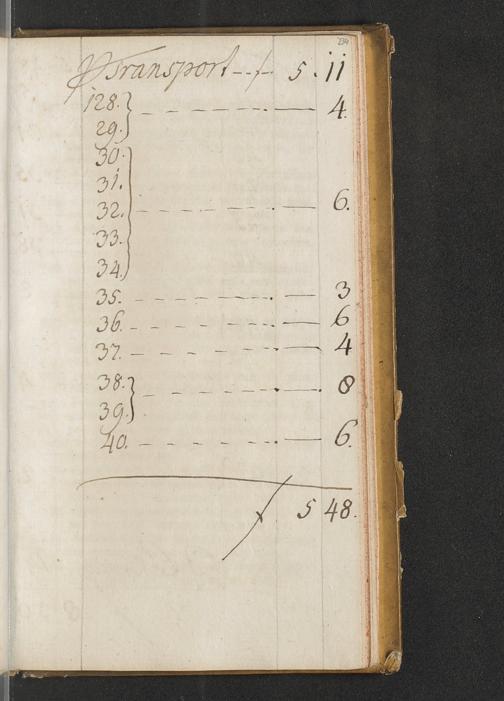 234
P Transport - - f 5 . 11
128. } - - - - - - — 4.
29. }
30. }
31. }
32. } - - - - - - — 6.
33. }
34. }
35. - - - - - - — 3
36. - - - - - - — 6
37. - - - - - - — 4
38. } - - - - - - — 8
39. }
40. - - - - - - — 6.
f 5 48.